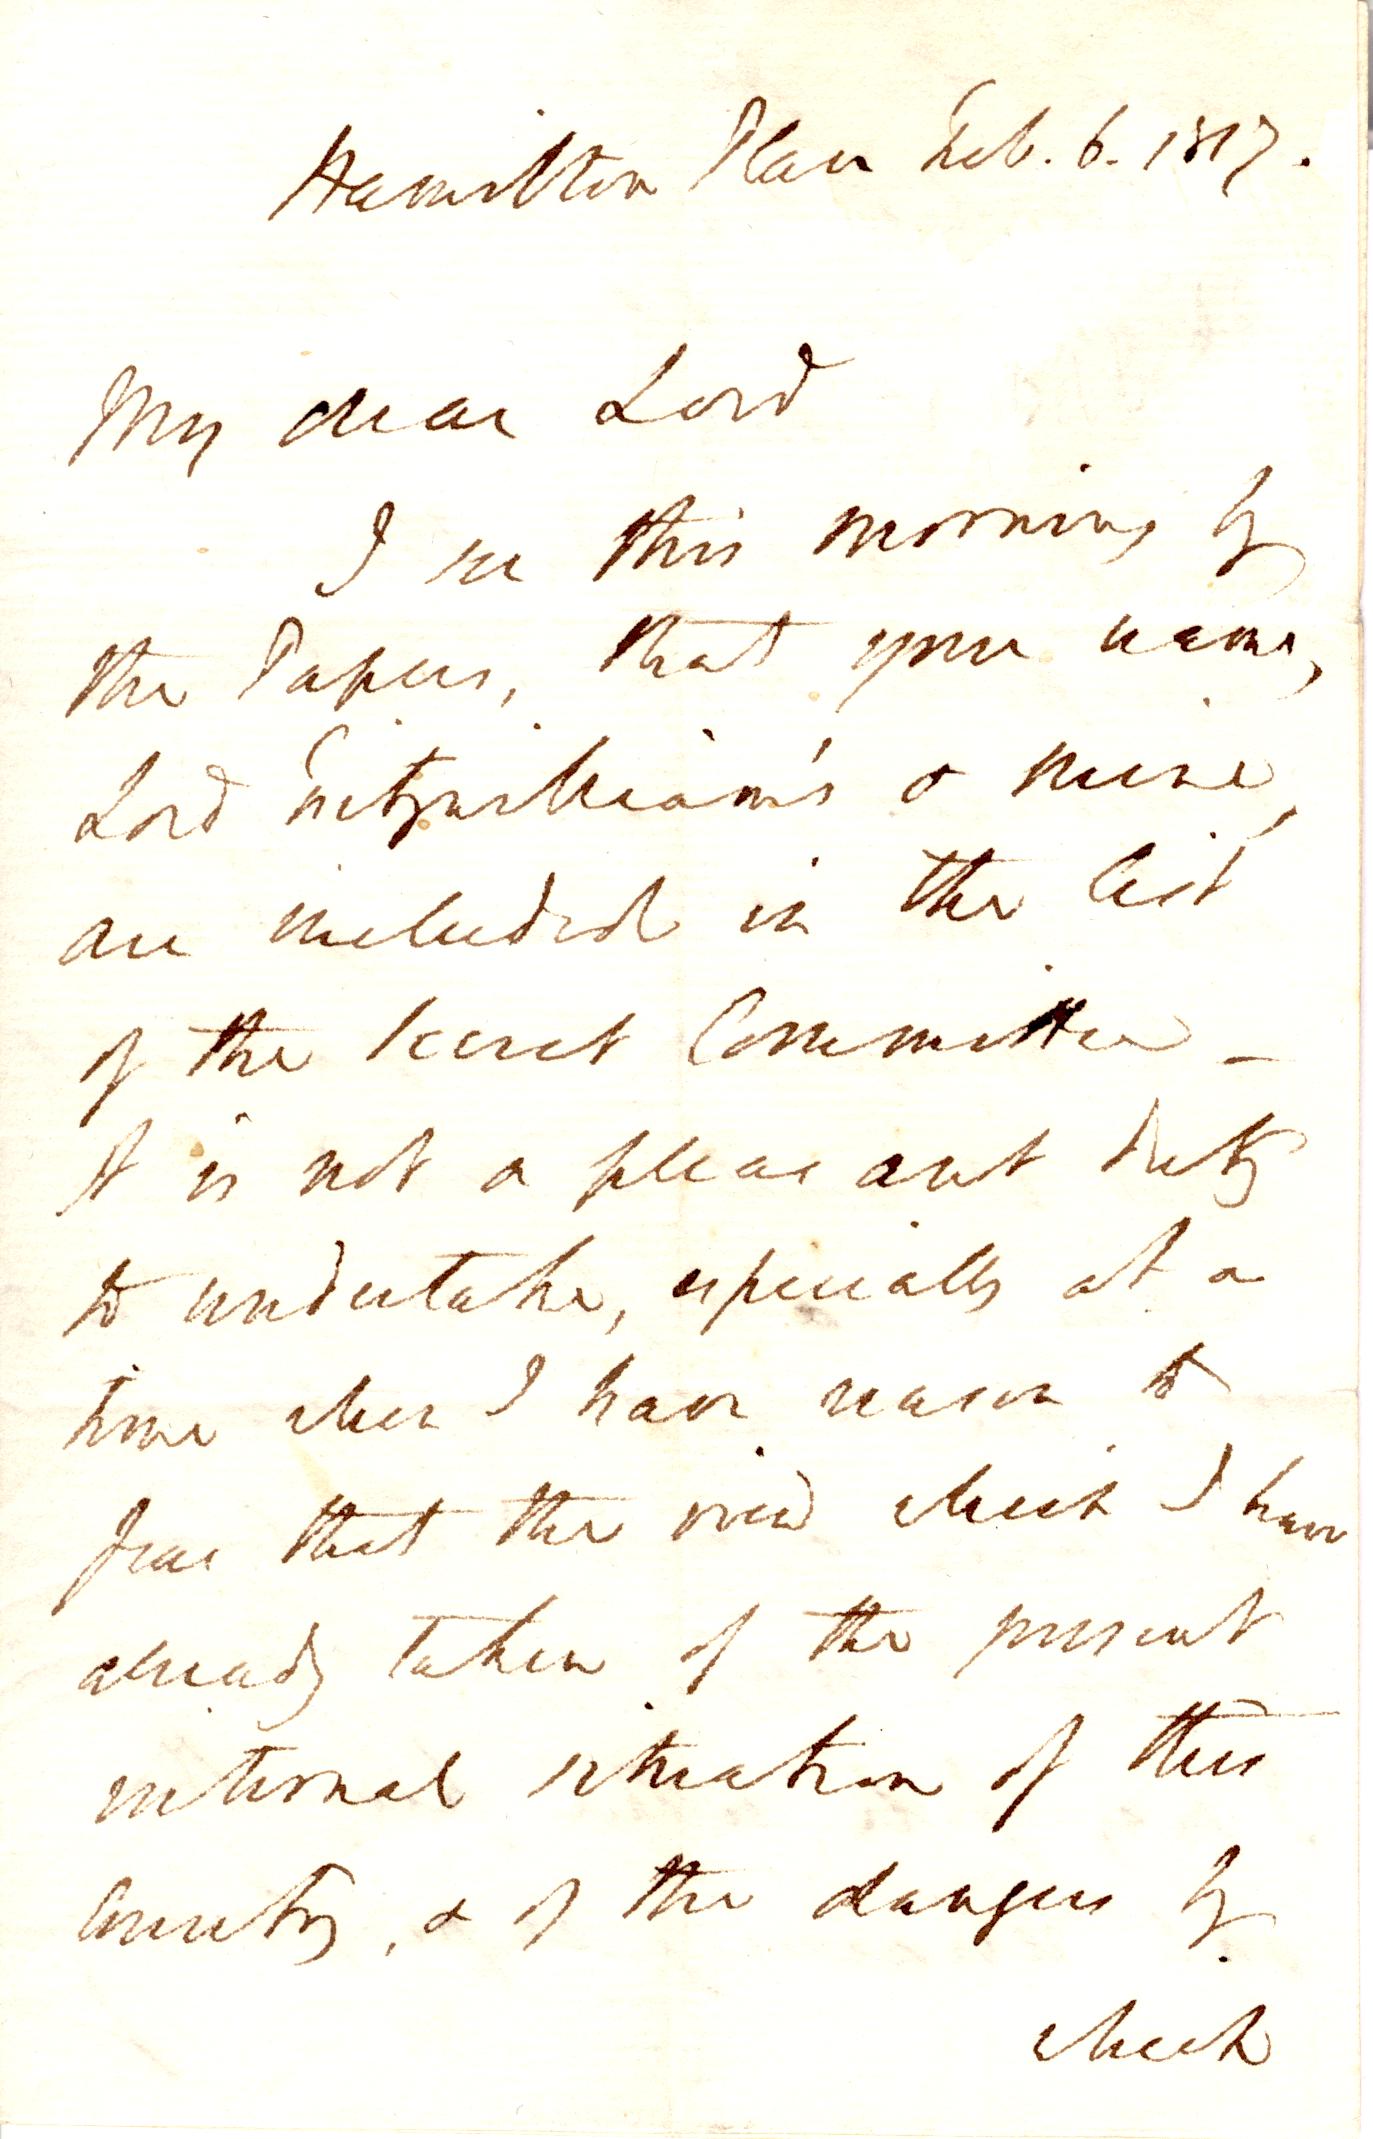 Hamilton Place Feb. 6. 1817.
My dear Lord
I see this morning by
the Papers, that your name,
Lord Fitzwilliam's & mine,
are included in the list
of the secret Committee _
It is not a pleasant duty
to undertake, especially at a
time when I have reason to
fear that the view which I have
already taken of the present
internal situation of this
Country, & of the dangers by
which